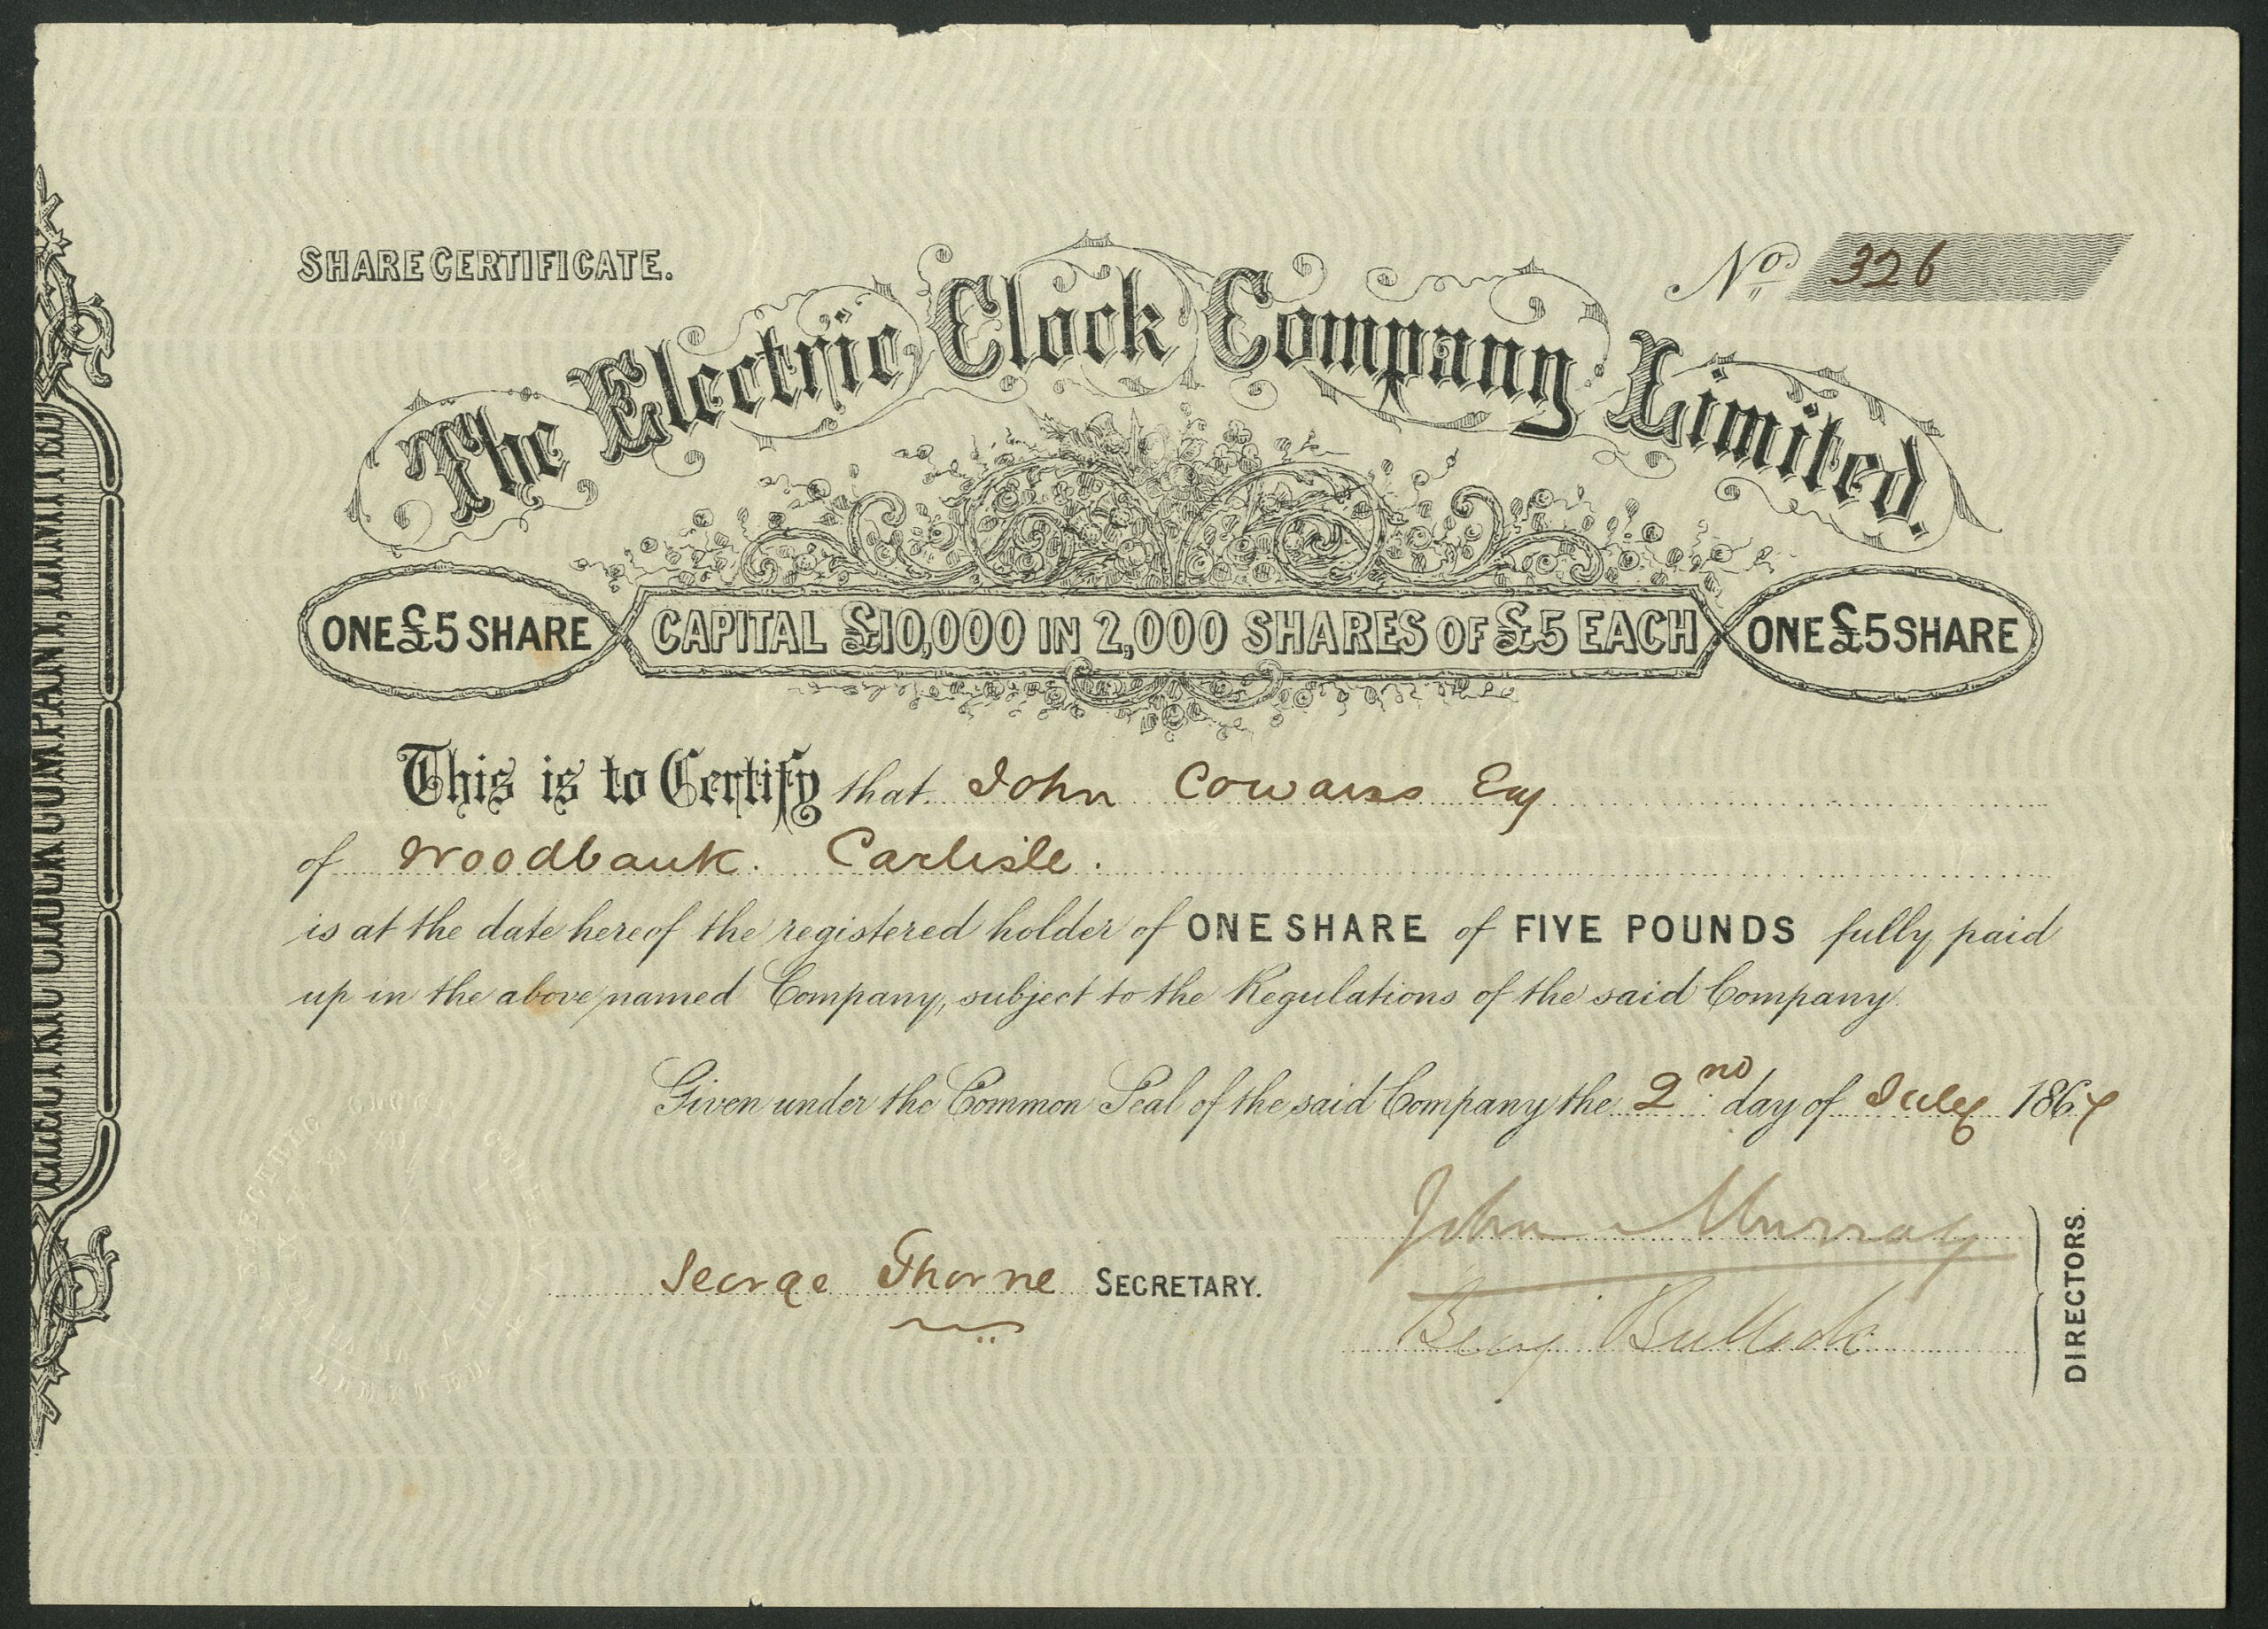 SHARE CERTIFICATE.
No 326
The Electric Clock Company Limited.
ONE £5 SHARE
CAPITAL £10,000 IN 2,000 SHARES OF £5 EACH
ONE £5 SHARE
This is to Certify that John Cowans Esq
of Woodbank. Carlisle.
is at the date hereof the registered holder of ONE SHARE of FIVE POUNDS fully paid
up in the above named Company, subject to the Regulations of the said Company.
Given under the Common Seal of the said Company the 2nd day of July 1867
John Murray
George Thorne SECRETARY.
Benj Bullock
DIRECTORS.
ELECTRIC CLOCK COMPANY, LIMITED